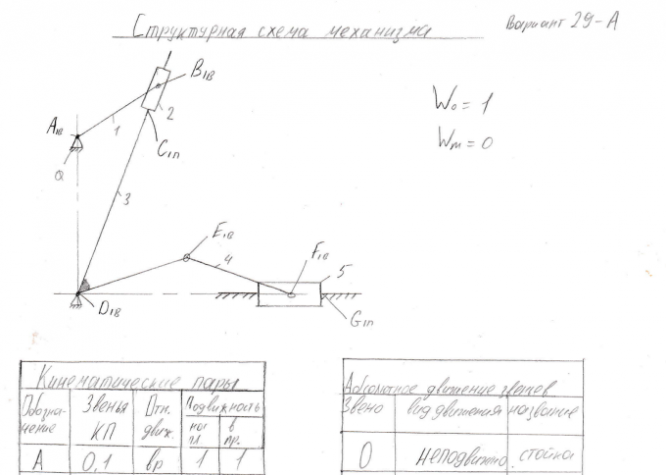 Структурная схема механизма
Вариант 29-А
B1в
A1в
1
2
W₀ = 1
Wт = 0
C1п
0
3
E1в
4
F1в
5
D1в
G1п
Кинематические пары
Обозна-
чение
Звенья
КП
Отн.
движ.
Подвижность
в
пр.
А 0,1 вр 1 1
Абсолютное движение звеньев
Звено вид движения название
0 неподвижно стойка